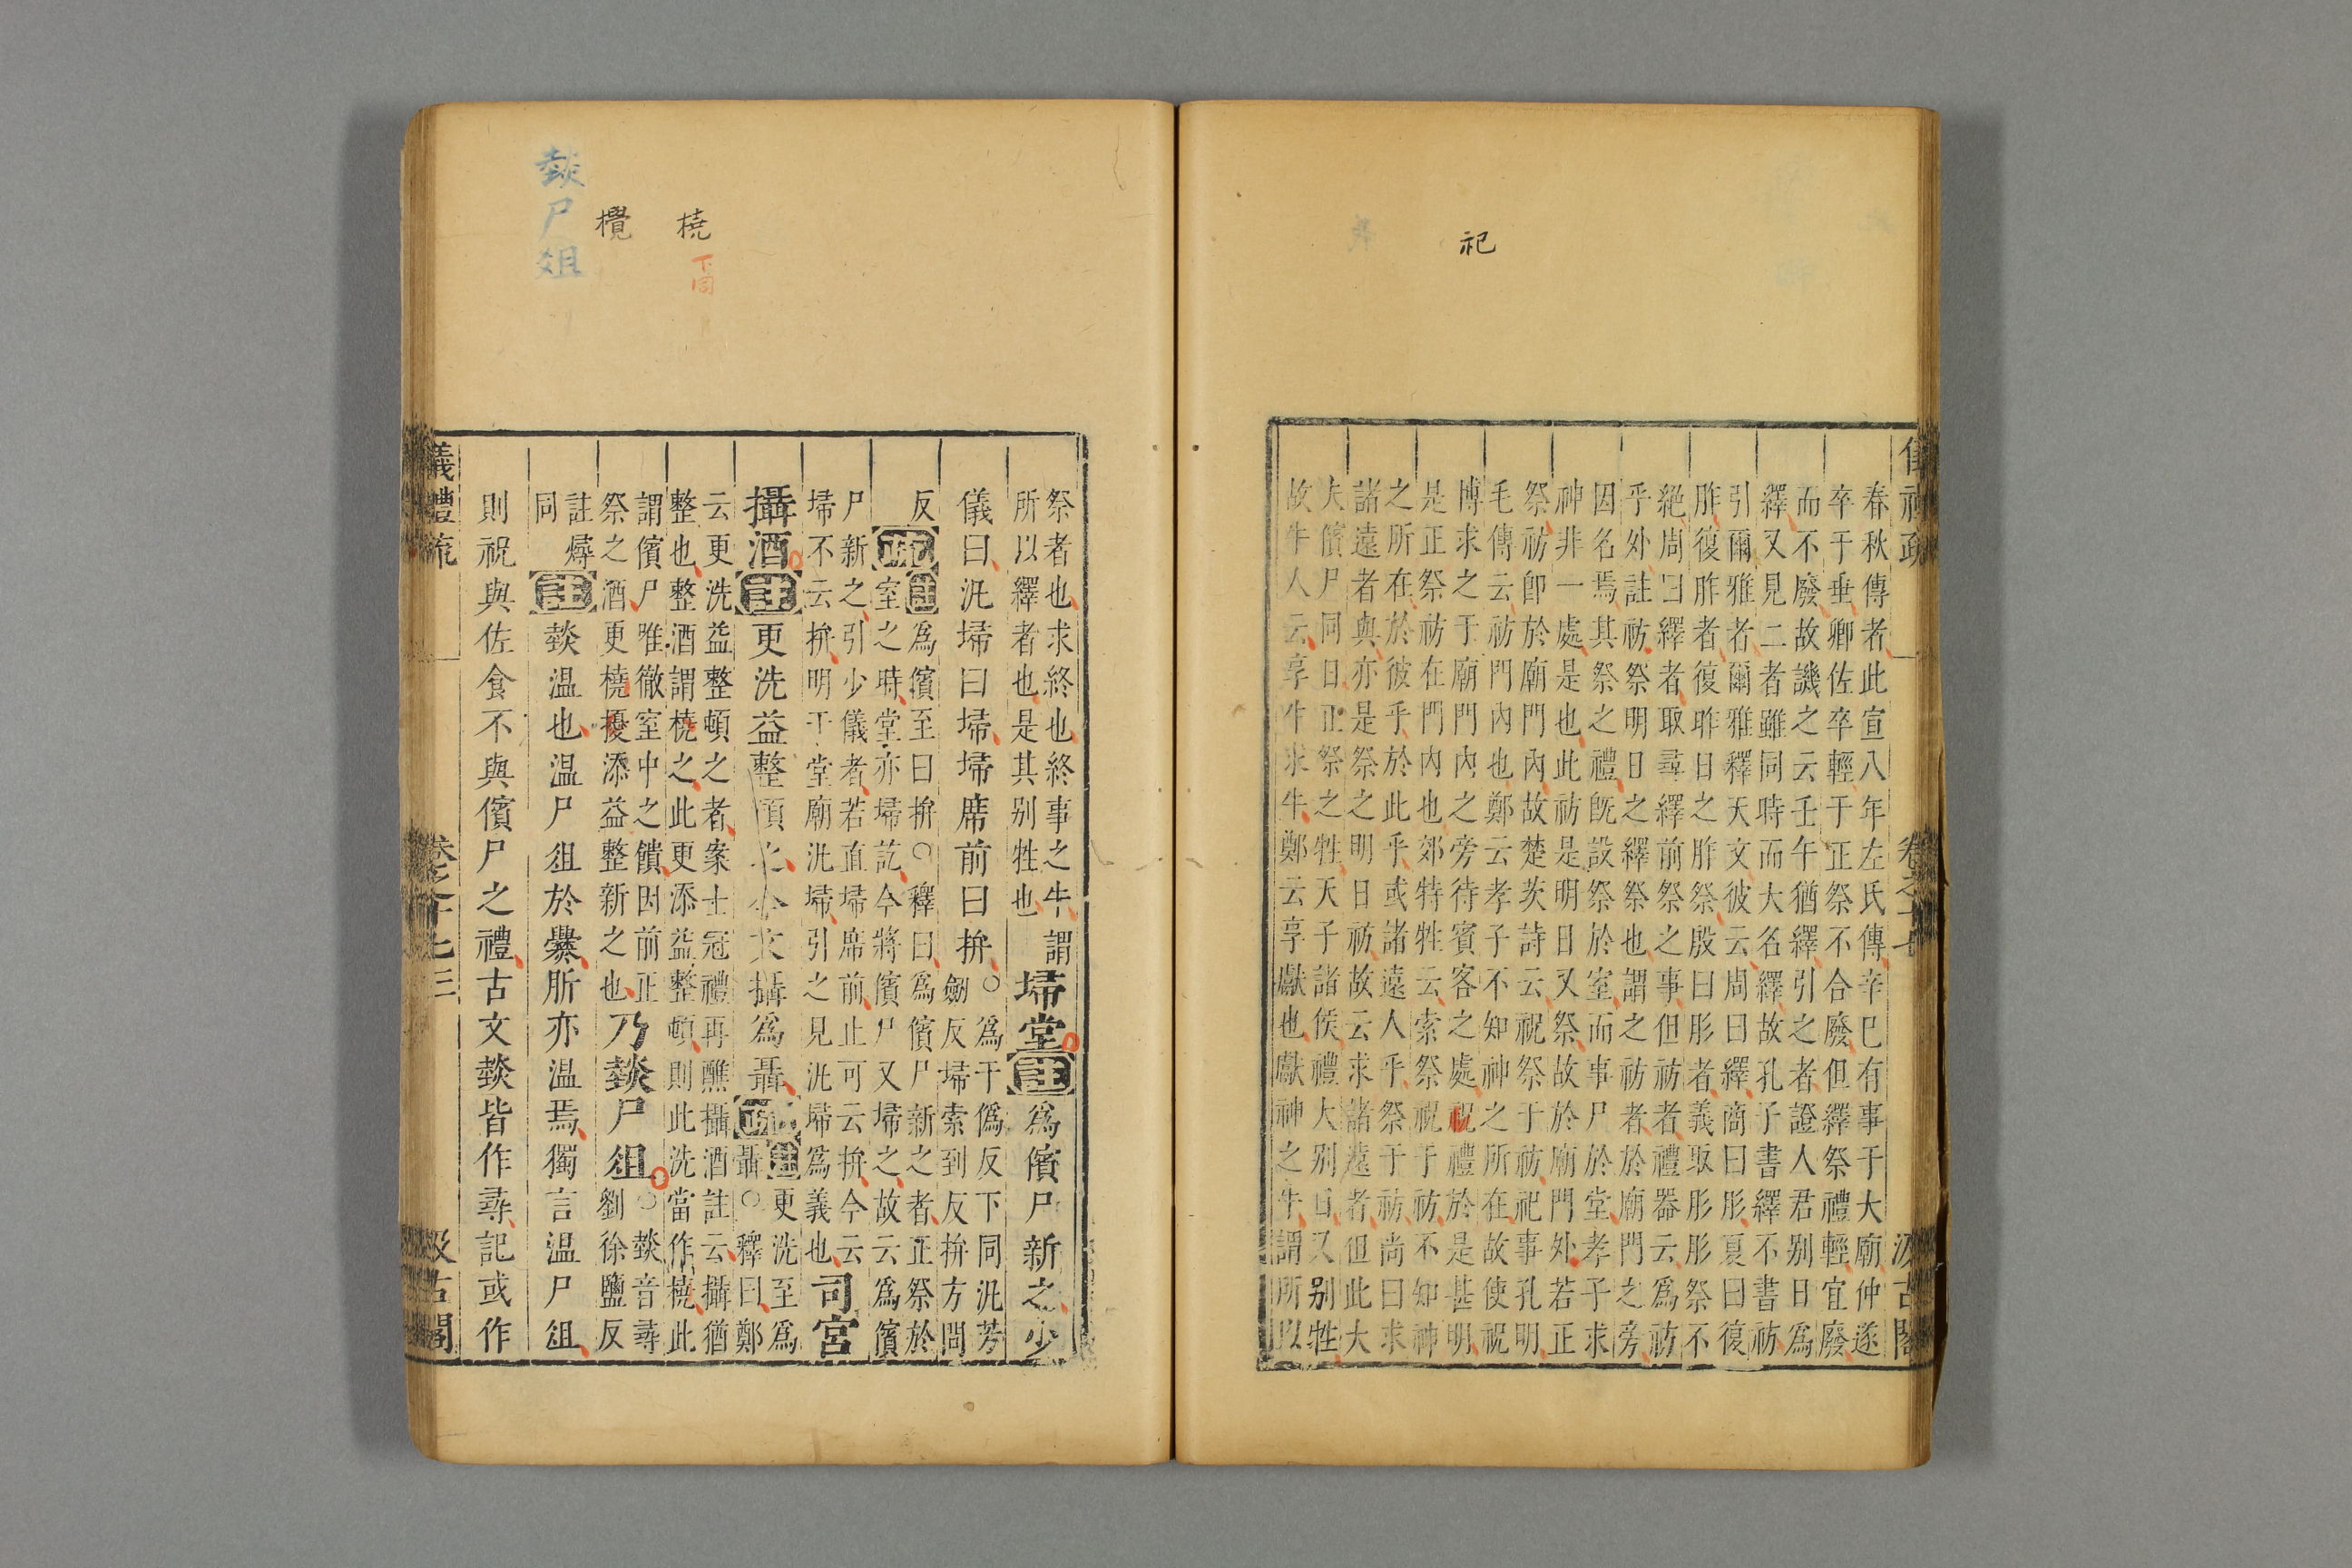 祀
儀禮疏 卷之十七 汲古閣
春秋傳者此宣八年左氏傳辛巳有事于大廟仲遂
卒于垂卿佐卒輕于正祭不合廢但繹祭禮輕宜廢
而不廢故譏之云壬午猶繹引之者證人君别日為
繹又見二者雖同時而大名繹故孔子書繹不書祊
引爾雅者爾雅釋天文彼云周曰繹商曰肜夏曰復
胙復胙者復昨日之胙祭殷曰肜者義取肜肜祭不
絶周曰繹者取尋繹前祭之事但祊者禮器云為祊
乎外註祊祭明日之繹祭也謂之祊者於廟門之旁
因名焉其祭之禮旣設祭於室而事尸於堂孝子求
神非一處是也此祊是明日又祭故於廟門外若正
祭祊卽於廟門內故楚茨詩云祝祭于祊祀事孔明
毛傳云祊門內也鄭云孝子不知神之所在故使祝
博求之于廟門內之旁待賓客之處祝禮於是甚明
是正祭祊在門內也郊特牲云索祭祝于祊不知神
之所在於彼乎於此乎或諸遠人乎祭于祊尚曰求
諸遠者與亦是祭之明日祊故云求諸遠者但此大
夫儐尸同日正祭之牲天子諸侯禮大别日又别牲
故牛人云享牛求牛鄭云享獻也獻神之牛謂所以
橈
下同
櫕
燅尸俎
祭者也求終也終事之牛謂
所以繹者也是其别牲也
埽堂註為儐尸新之少
儀曰汎埽曰埽埽席前曰拚
○為于偽反下同汎芳
劒反埽索到反拚方問
反疏註為儐至曰拚○釋曰為儐尸新之者正祭於
室之時堂亦埽訖今將儐尸又埽之故云為儐
尸新之引少儀者若直埽席前止可云拚今云
埽不云拚明于堂廟汎埽引之見汎埽為義也
司宮
攝酒註更洗益整頓之今文攝為聶
疏註更洗至為
聶○釋曰鄭
云更洗益整頓之者案士冠禮再醮攝酒註云攝猶
整也整酒謂橈之此更添益整頓則此洗當作橈此
謂儐尸唯徹室中之饋因前正
祭之酒更橈擾添益整新之也
乃燅尸俎
○燅音尋
劉徐鹽反
註燖
同
註燅温也温尸俎於爨肵亦温焉獨言温尸俎
則祝與佐食不與儐尸之禮古文燅皆作尋記或作
儀禮疏 卷之十七 三 汲古閣